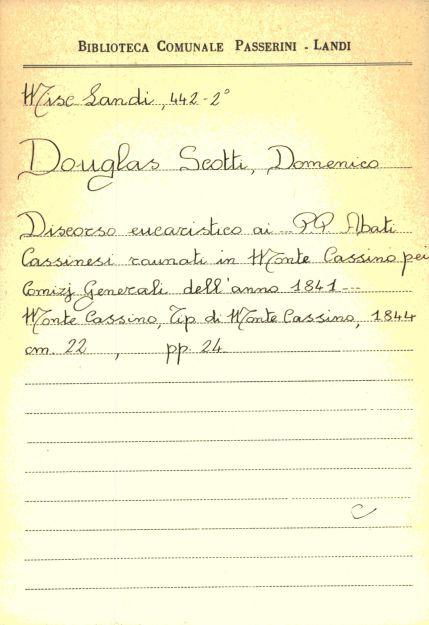 BIBLIOTECA COMUNALE PASSERINI - LANDI
Misc Landi, 442-2°
Douglas Scotti, Domenico
Discorso eucaristico ai ... P.P. Abati
Cassinesi raunati in Monte Cassino pei
Comizj Generali dell'anno 1841 ...
Monte Cassino, Tip di Monte Cassino, 1844
cm. 22 , pp. 24.
C